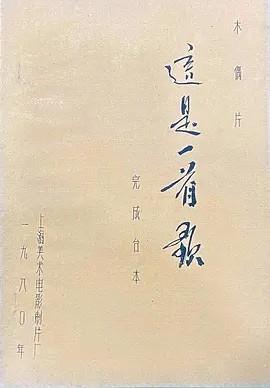 木偶片
這是一首歌
完成台本
上海美术电影制片厂
一九八〇年